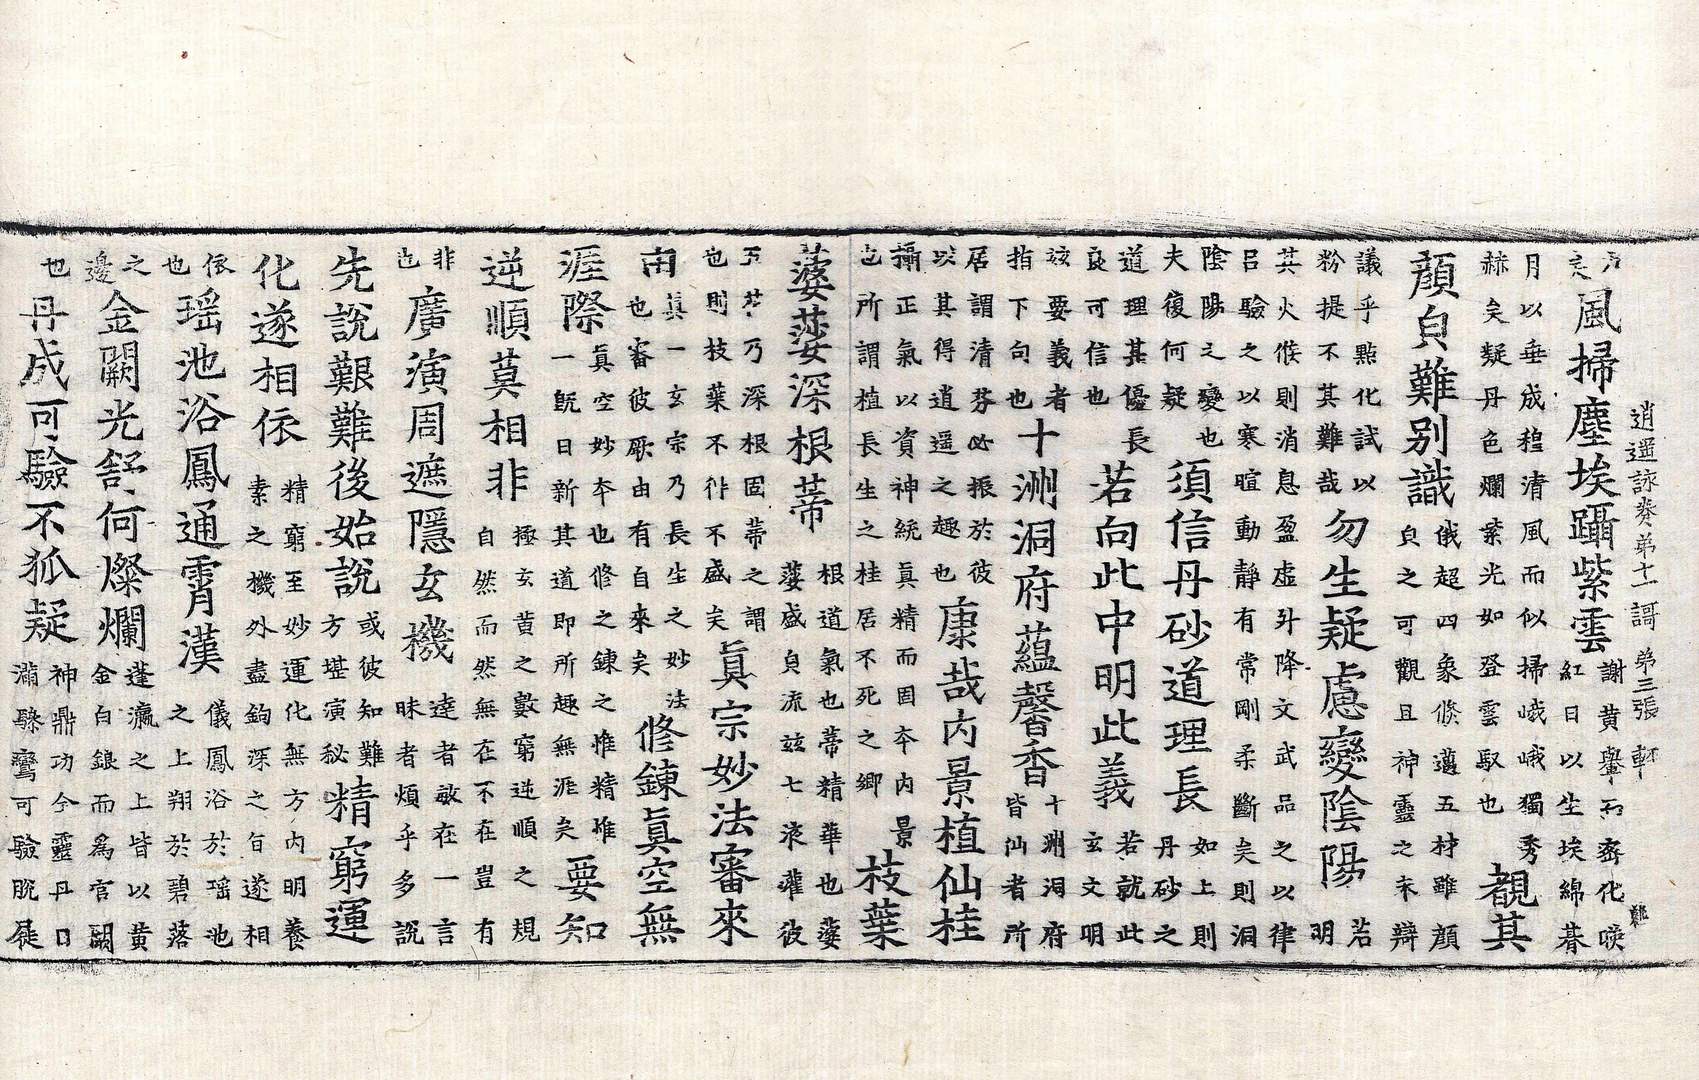 逍遥詠卷第十一 謌 第三張 軒
風掃塵埃躡紫雲
謝黄轝而齊化喚
紅日以生埃綿暮
覩其
月以垂成程清風而似掃峨峨獨秀
赫矣疑丹色爛紫光如登雲馭也
顔皃難別識
俄超四象倏邁五材雖顔
皃之可觀且神靈之末辯
議乎點化試以
粉提不其難哉
勿生疑慮變陰陽
若
明
其火候則消息盈虚斗降文武品之以律
吕驗之以寒暄動靜有常剛柔斷矣則洞
陰陽之變也
夫復何疑
須信丹砂道理長
如上則
丹砂之
道理其優長
良可信也
若向此中明此義
若就此
玄文明
玆要義者
指下句也
十洲洞府蘊馨香
十洲洞府
皆仙者所
居謂清芬必振於彼
以其得逍遥之趣也
康哉内景植仙桂
攝正氣以資神統眞精而固本内景
也所謂植長生之桂居不死之鄉
枝葉
蔢莎深根蔕
根道氣也蔕精華也蔢
蔢盛皃流玆七液灌彼
乃深根固蔕之謂
也則枝葉不徃不盛矣
眞宗妙法審來
眞一玄宗乃長生之妙法
也審彼厥由有自來矣
修鍊眞空無
涯際
眞空妙本也修之鍊之惟精惟
一旣日新其道即所趣無涯矣
要知
逆順莫相非
極玄黄之數窮逆順之規
自然而然無在不在豈有
非
也
廣演周遮隱玄機
達者敏在一言
昧者煩乎多說
先說艱難後始說
或彼知難
方堪演秘
精窮運
化遂相依
精窮至妙運化無方内明養
素之機外盡鉤深之旨遂相
依
也
瑶池浴鳳通霄漢
儀鳳浴於瑶池
之上翔於碧落
之
邊
金闕光舒何燦爛
蓬瀛之上皆以黄
金白銀而爲宫闕
也
丹成可驗不狐疑
神鼎功今靈丹口
滿驂鸞可驗脫屣